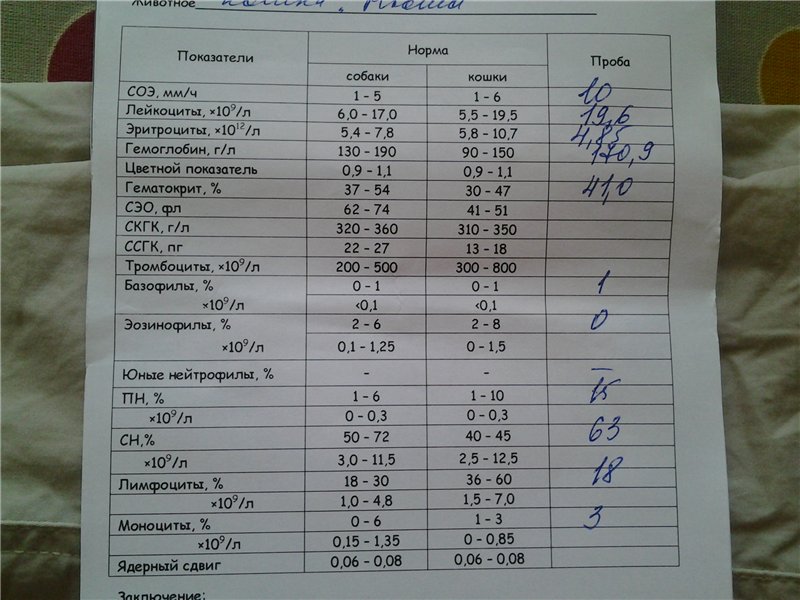 Животное кошка
Показатели Норма Проба
собаки кошки
СОЭ, мм/ч 1 – 5 1 – 6 10
Лейкоциты, ×10⁹/л 6,0 – 17,0 5,5 – 19,5 19,6
Эритроциты, ×10¹²/л 5,4 – 7,8 5,8 – 10,7 4,85
Гемоглобин, г/л 130 – 190 90 – 150 170,9
Цветной показатель 0,9 – 1,1 0,9 – 1,1
Гематокрит, % 37 – 54 30 – 47 41,0
СЭО, фл 62 – 74 41 – 51
СКГК, г/л 320 – 360 310 – 350
ССГК, пг 22 – 27 13 – 18
Тромбоциты, ×10⁹/л 200 – 500 300 – 800
Базофилы, % 0 – 1 0 – 1 1
×10⁹/л <0,1 <0,1
Эозинофилы, % 2 – 6 2 – 8 0
×10⁹/л 0,1 – 1,25 0 – 1,5
Юные нейтрофилы, % - - –
ПН, % 1 – 6 1 – 10 15
×10⁹/л 0 – 0,3 0 – 0,3
СН,% 50 – 72 40 – 45 63
×10⁹/л 3,0 – 11,5 2,5 – 12,5
Лимфоциты, % 18 – 30 36 – 60 18
×10⁹/л 1,0 – 4,8 1,5 – 7,0
Моноциты, % 0 – 6 1 – 3 3
×10⁹/л 0,15 – 1,35 0 – 0,85
Ядерный сдвиг 0,06 – 0,08 0,06 – 0,08
Заключение: